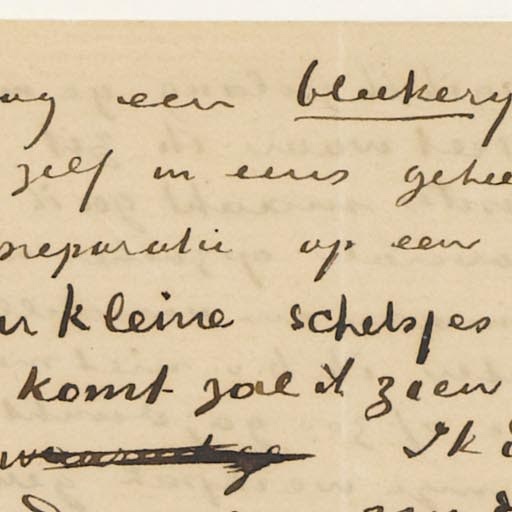 een bleekery
zelf in eens gehee
preparatie op een
kleine schetsjes
komt zal ik zien
Ik